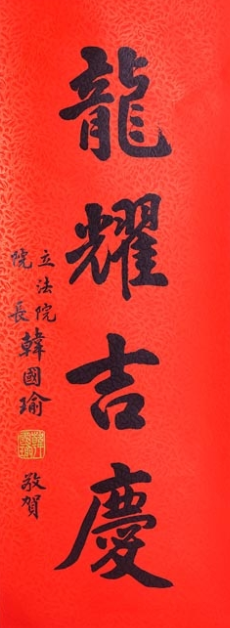 龍耀吉慶
立法院
院長韓國瑜
敬賀